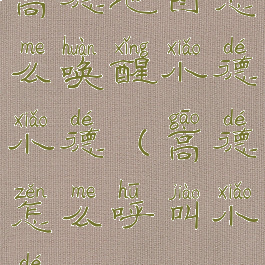 高德地图怎
me huàn xǐng xiǎo dé
么唤醒小德
xiǎo dé gāo dé
小德（高德
zěn me hū jiào xiǎo
怎么呼叫小
dé